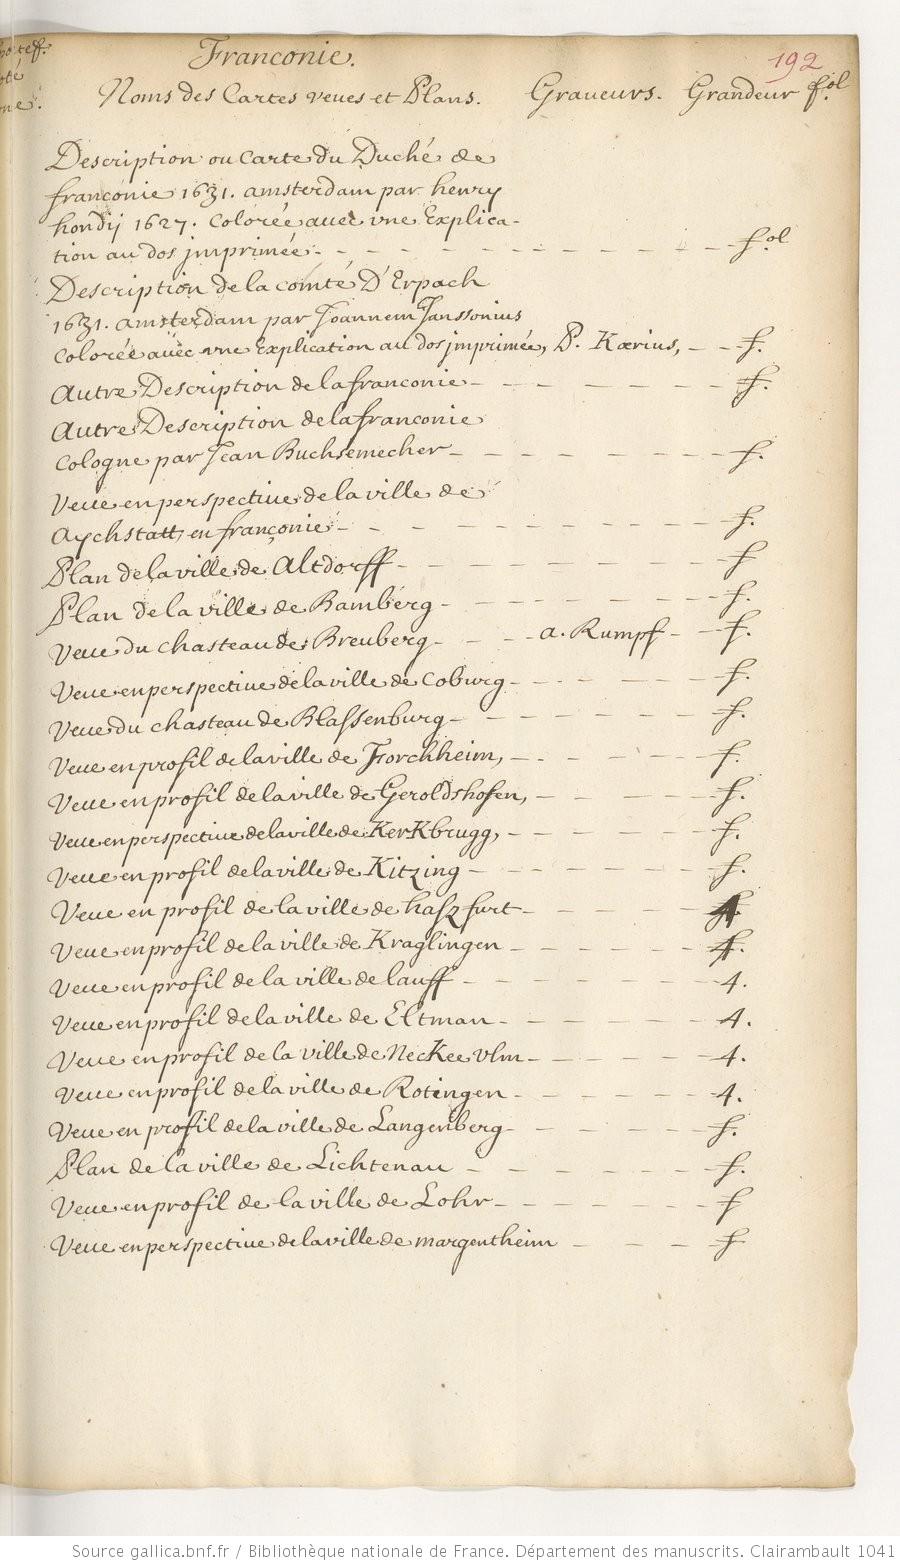 Franconie.
192
Noms des Cartes veues et Plans. Graveurs. Grandeur fol
Description ou Carte du Duché de
franconie 1631. amsterdam par henry
hondij 1627. Colorée avec vne Explica-
tion au dos jmprimée - - - - - - - - - - - fol
Description de la comté D'Erpach
1631. amsterdam par Joannem Janssonius
Colorée avec vne Explication au dos jmprimée, P. Kærius, - - f.
Autre Description de la franconie - - - - - - f.
Autre Description de la franconie
Cologne par Jean Buchsemecher - - - - - - - f.
Veue en perspective de la ville de
Aychstatt, en franconie - - - - - - - - - - f.
Plan de la ville de Altdorff - - - - - - - - - f
Plan de la ville de Bamberg - - - - - - - - f.
Veue du chasteau de Breuberg - - - - a. Rumpf - - f.
Veue en perspective de la ville de Coburg - - - - - - f.
Veue du chasteau de Blassenburg - - - - - - - f.
Veue en profil de la ville de Forchheim, - - - - - f.
Veue en profil de la ville de Geroldshofen, - - - - - f.
Veue en perspective de la ville de Kerkbrugg, - - - - - f.
Veue en profil de la ville de Kitzing - - - - - - - f.
Veue en profil de la ville de haszfurt - - - - - - 4.
Veue en profil de la ville de Kraglingen - - - - - - 4.
Veue en profil de la ville de lauff - - - - - - - - 4.
Veue en profil de la ville de Eltman - - - - - - - 4.
Veue en profil de la ville de Neckee vlm - - - - - - 4.
Veue en profil de la ville de Rotingen - - - - - - 4.
Veue en profil de la ville de Langenberg - - - - - - f.
Plan de la ville de Lichtenau - - - - - - - f.
Veue en profil de la ville de Lohr - - - - - - - f
Veue en perspective de la ville de margentheim - - - - f
Source gallica.bnf.fr / Bibliothèque nationale de France. Département des manuscrits. Clairambault 1041